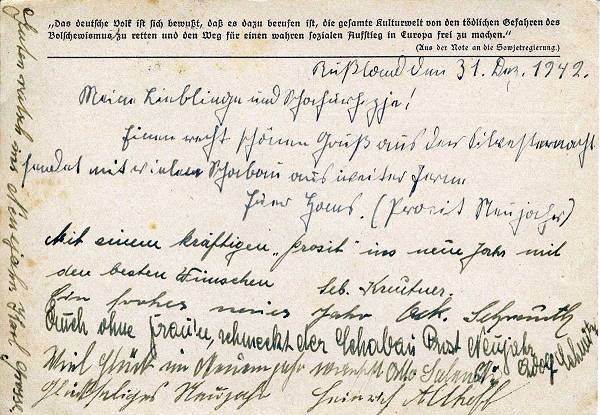 „Das deutsche Volk ist sich bewußt, daß es dazu berufen ist, die gesamte Kulturwelt von den tödlichen Gefahren des
Bolschewismus zu retten und den Weg für einen wahren sozialen Aufstieg in Europa frei zu machen."
(Aus der Note an die Sowjetregierung.)
Rußland den 31. Dez. 1942.
Meine Lieblinge und
Einen recht schönen Gruß aus der Silvesternacht
sendet mit vielen Schabau aus weiter Ferne
Euer Hans. (Prosit Neujahr)
Mit einem kräftigen „Prosit" ins neue Jahr mit
den besten Wünschen
Ein frohes neues Jahr
Auch ohne Frauen, schmeckt der Schabau Prost Neujahr
Adolf Schmitz
Viel Glück im Neuen Jahr wünscht Otto
Glückseliges Neujahr Heinrich